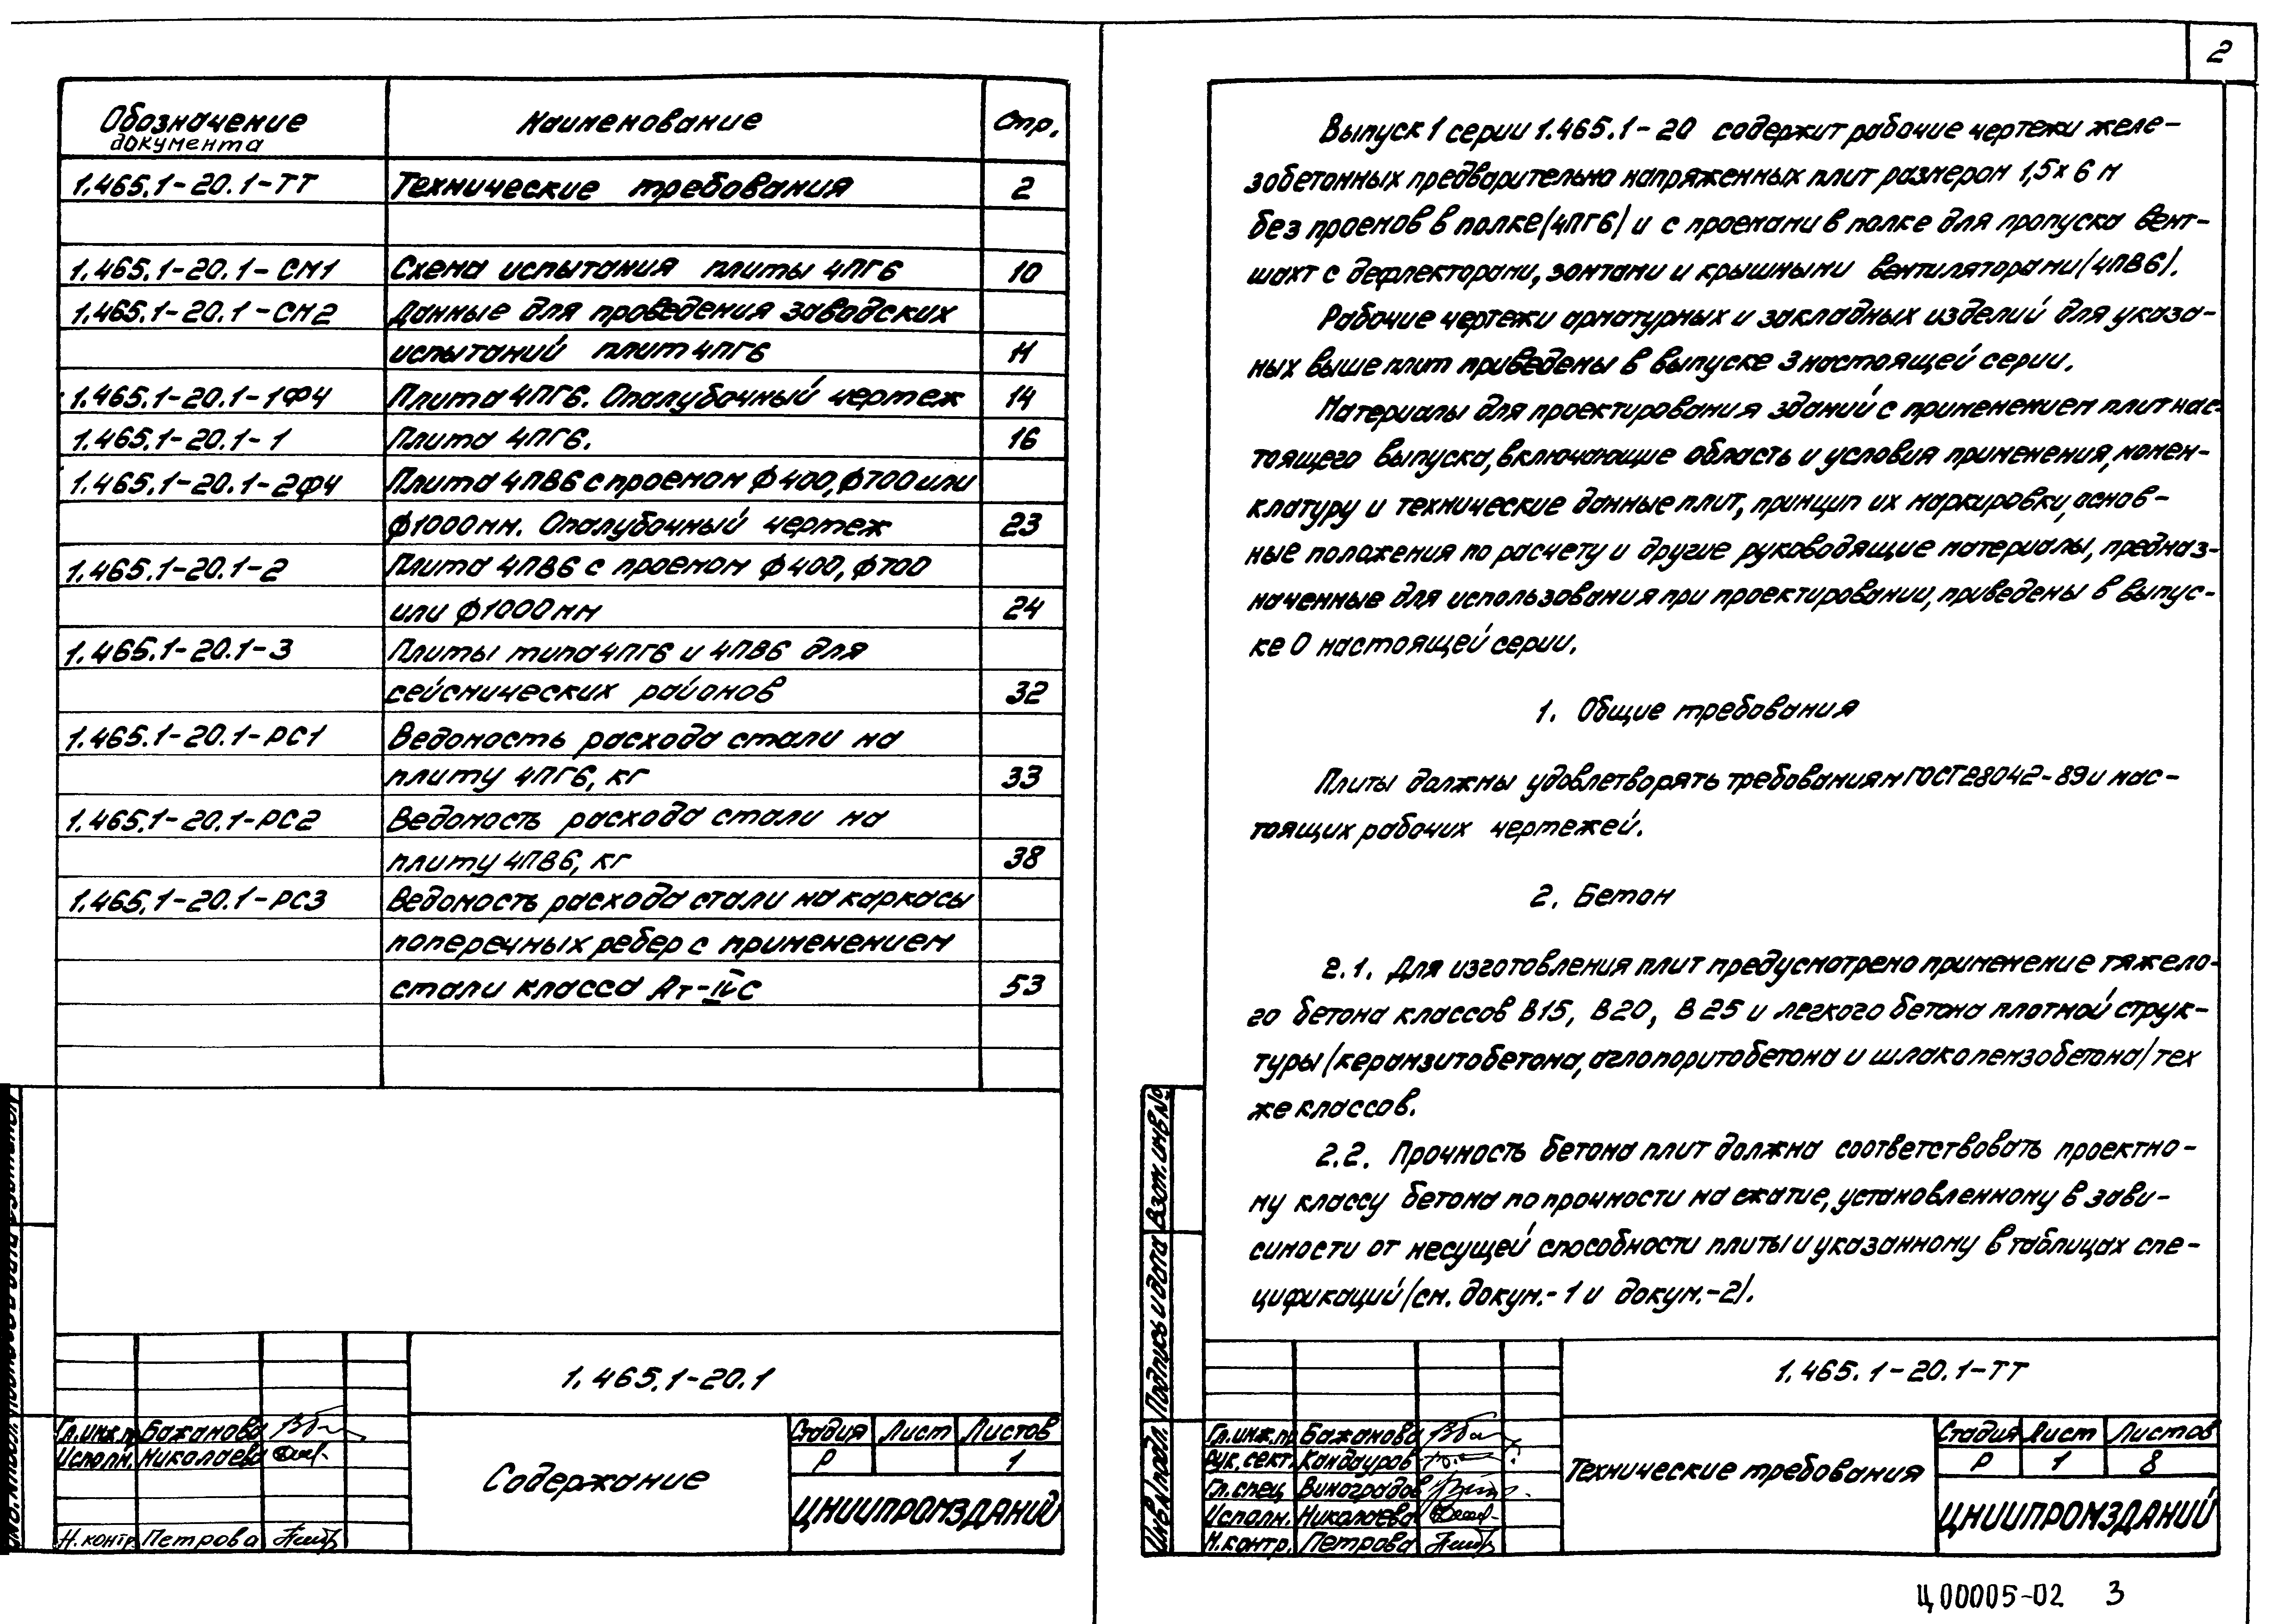 Обозначение документа Наименование Стр.
1.465.1-20.1-ТТ Технические требования 2
1.465.1-20.1-СМ1 Схема испытания плиты 4ПГ6 10
1.465.1-20.1-СМ2 Данные для проведения заводских
испытаний плит 4ПГ6 11
1.465.1-20.1-1ФЧ Плита 4ПГ6. Опалубочный чертеж 14
1.465.1-20.1-1 Плита 4ПГ6. 16
1.465.1-20.1-2ФЧ Плита 4ПВ6 с проемом ф400, ф700 или
ф1000мм. Опалубочный чертеж 23
1.465.1-20.1-2 Плита 4ПВ6 с проемом ф400, ф700
или ф1000мм 24
1.465.1-20.1-3 Плиты типа 4ПГ6 и 4ПВ6 для
сейсмических районов 32
1.465.1-20.1-РС1 Ведомость расхода стали на
плиту 4ПГ6, кг 33
1.465.1-20.1-РС2 Ведомость расхода стали на
плиту 4ПВ6, кг 38
1.465.1-20.1-РС3 Ведомость расхода стали на каркасы
поперечных ребер с применением
стали класса Ат-IVС 53
1.465.1-20.1
Гл.инж.пр Бажанова
Исполн. Николаева
Н.контр Петрова
Содержание
Стадия Лист Листов
Р 1
ЦНИИПРОМЗДАНИЙ
2
Выпуск 1 серии 1.465.1-20 содержит рабочие чертежи желе-
зобетонных предварительно напряженных плит размером 1,5х6 м
без проемов в полке (4ПГ6) и с проемами в полке для пропуска вент-
шахт с дефлекторами, зонтами и крышными вентиляторами (4ПВ6).
Рабочие чертежи арматурных и закладных изделий для указа-
ных выше плит приведены в выпуске 3 настоящей серии.
Материалы для проектирования зданий с применением плит нас-
тоящего выпуска, включающие область и условия применения, номен-
клатуру и технические данные плит, принцип их маркировки, основ-
ные положения по расчету и другие руководящие материалы, предназ-
наченные для использования при проектировании, приведены в выпус-
ке 0 настоящей серии.
1. Общие требования
Плиты должны удовлетворять требованиям ГОСТ 28042-89 и нас-
тоящих рабочих чертежей.
2. Бетон
2.1. Для изготовления плит предусмотрено применение тяжело-
го бетона классов В15, В20, В25 и легкого бетона плотной струк-
туры (керамзитобетона, аглопоритобетона и шлакопемзобетона) тех
же классов.
2.2. Прочность бетона плит должна соответствовать проектно-
му классу бетона по прочности на сжатие, установленному в зави-
симости от несущей способности плиты и указанному в таблицах спе-
цификаций (см. докум.-1 и докум.-2).
Взам.инв№
Подпись и дата
Инв.№подл.
1.465.1-20.1-ТТ
Гл.инж.пр Бажанова
Рук.сект. Кандауров
Гл.спец Виноградов
Исполн. Николаева
Н.контр. Петрова
Технические требования
Стадия Лист Листов
Р 1 8
ЦНИИПРОМЗДАНИЙ
Ц00005-02 3